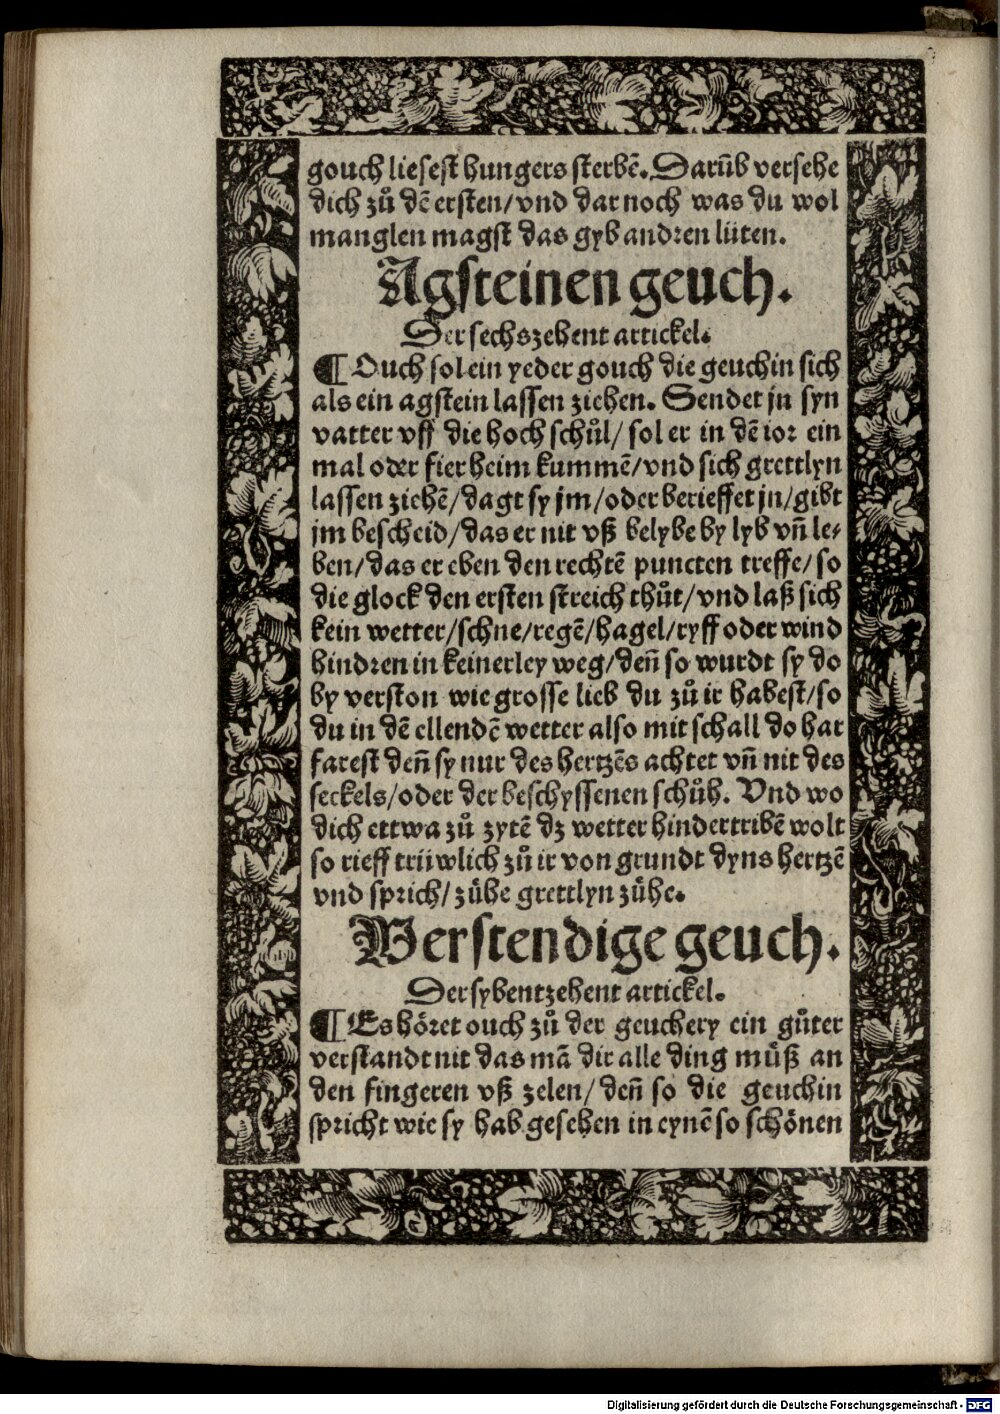 gouch liesest hungers sterbē. Darūb versehe
dich zů dē ersten/ vnd dar noch was du wol
manglen magst das gyb andren lüten.
Agsteinen geuch.
Der sechszehent artickel.
¶ Ouch sol ein yeder gouch die geuchin sich
als ein agstein lassen ziehen. Sendet jn syn
vatter vff die hoch schůl/ sol er in dē ior ein
mal oder fier heim kummē/ vnd sich grettlyn
lassen ziehē/ dagt sy jm/ oder berieffet jn/ gibt
jm bescheid/ das er nit vß belybe by lyb vn̄ le⸗
ben/ das er eben den rechtē puncten treffe/ so
die glock den ersten streich thůt/ vnd laß sich
kein wetter/ schne/ regē/ hagel/ ryff oder wind
hindren in keinerley weg/ den̄ so wurdt sy do
by verston wie grosse lieb du zů ir habest/ so
du in dē ellendē wetter also mit schall do har
farest den̄ sy nur des hertzēs achtet vn̄ nit des
seckels/ oder der beschyssenen schůh. Vnd wo
dich ettwa zů zytē dz wetter hindertribē wolt
so rieff trüwlich zů ir von grundt dyns hertzē
vnd sprich/ zühe grettlyn zühe.
Verstendige geuch.
Der sybentzehent artickel.
¶ Es höret ouch zů der geuchery ein gůter
verstandt nit das mā dir alle ding můß an
den fingeren vß zelen/ den̄ so die geuchin
spricht wie sy hab gesehen in eynē so schönen
Digitalisierung gefördert durch die Deutsche Forschungsgemeinschaft - DFG